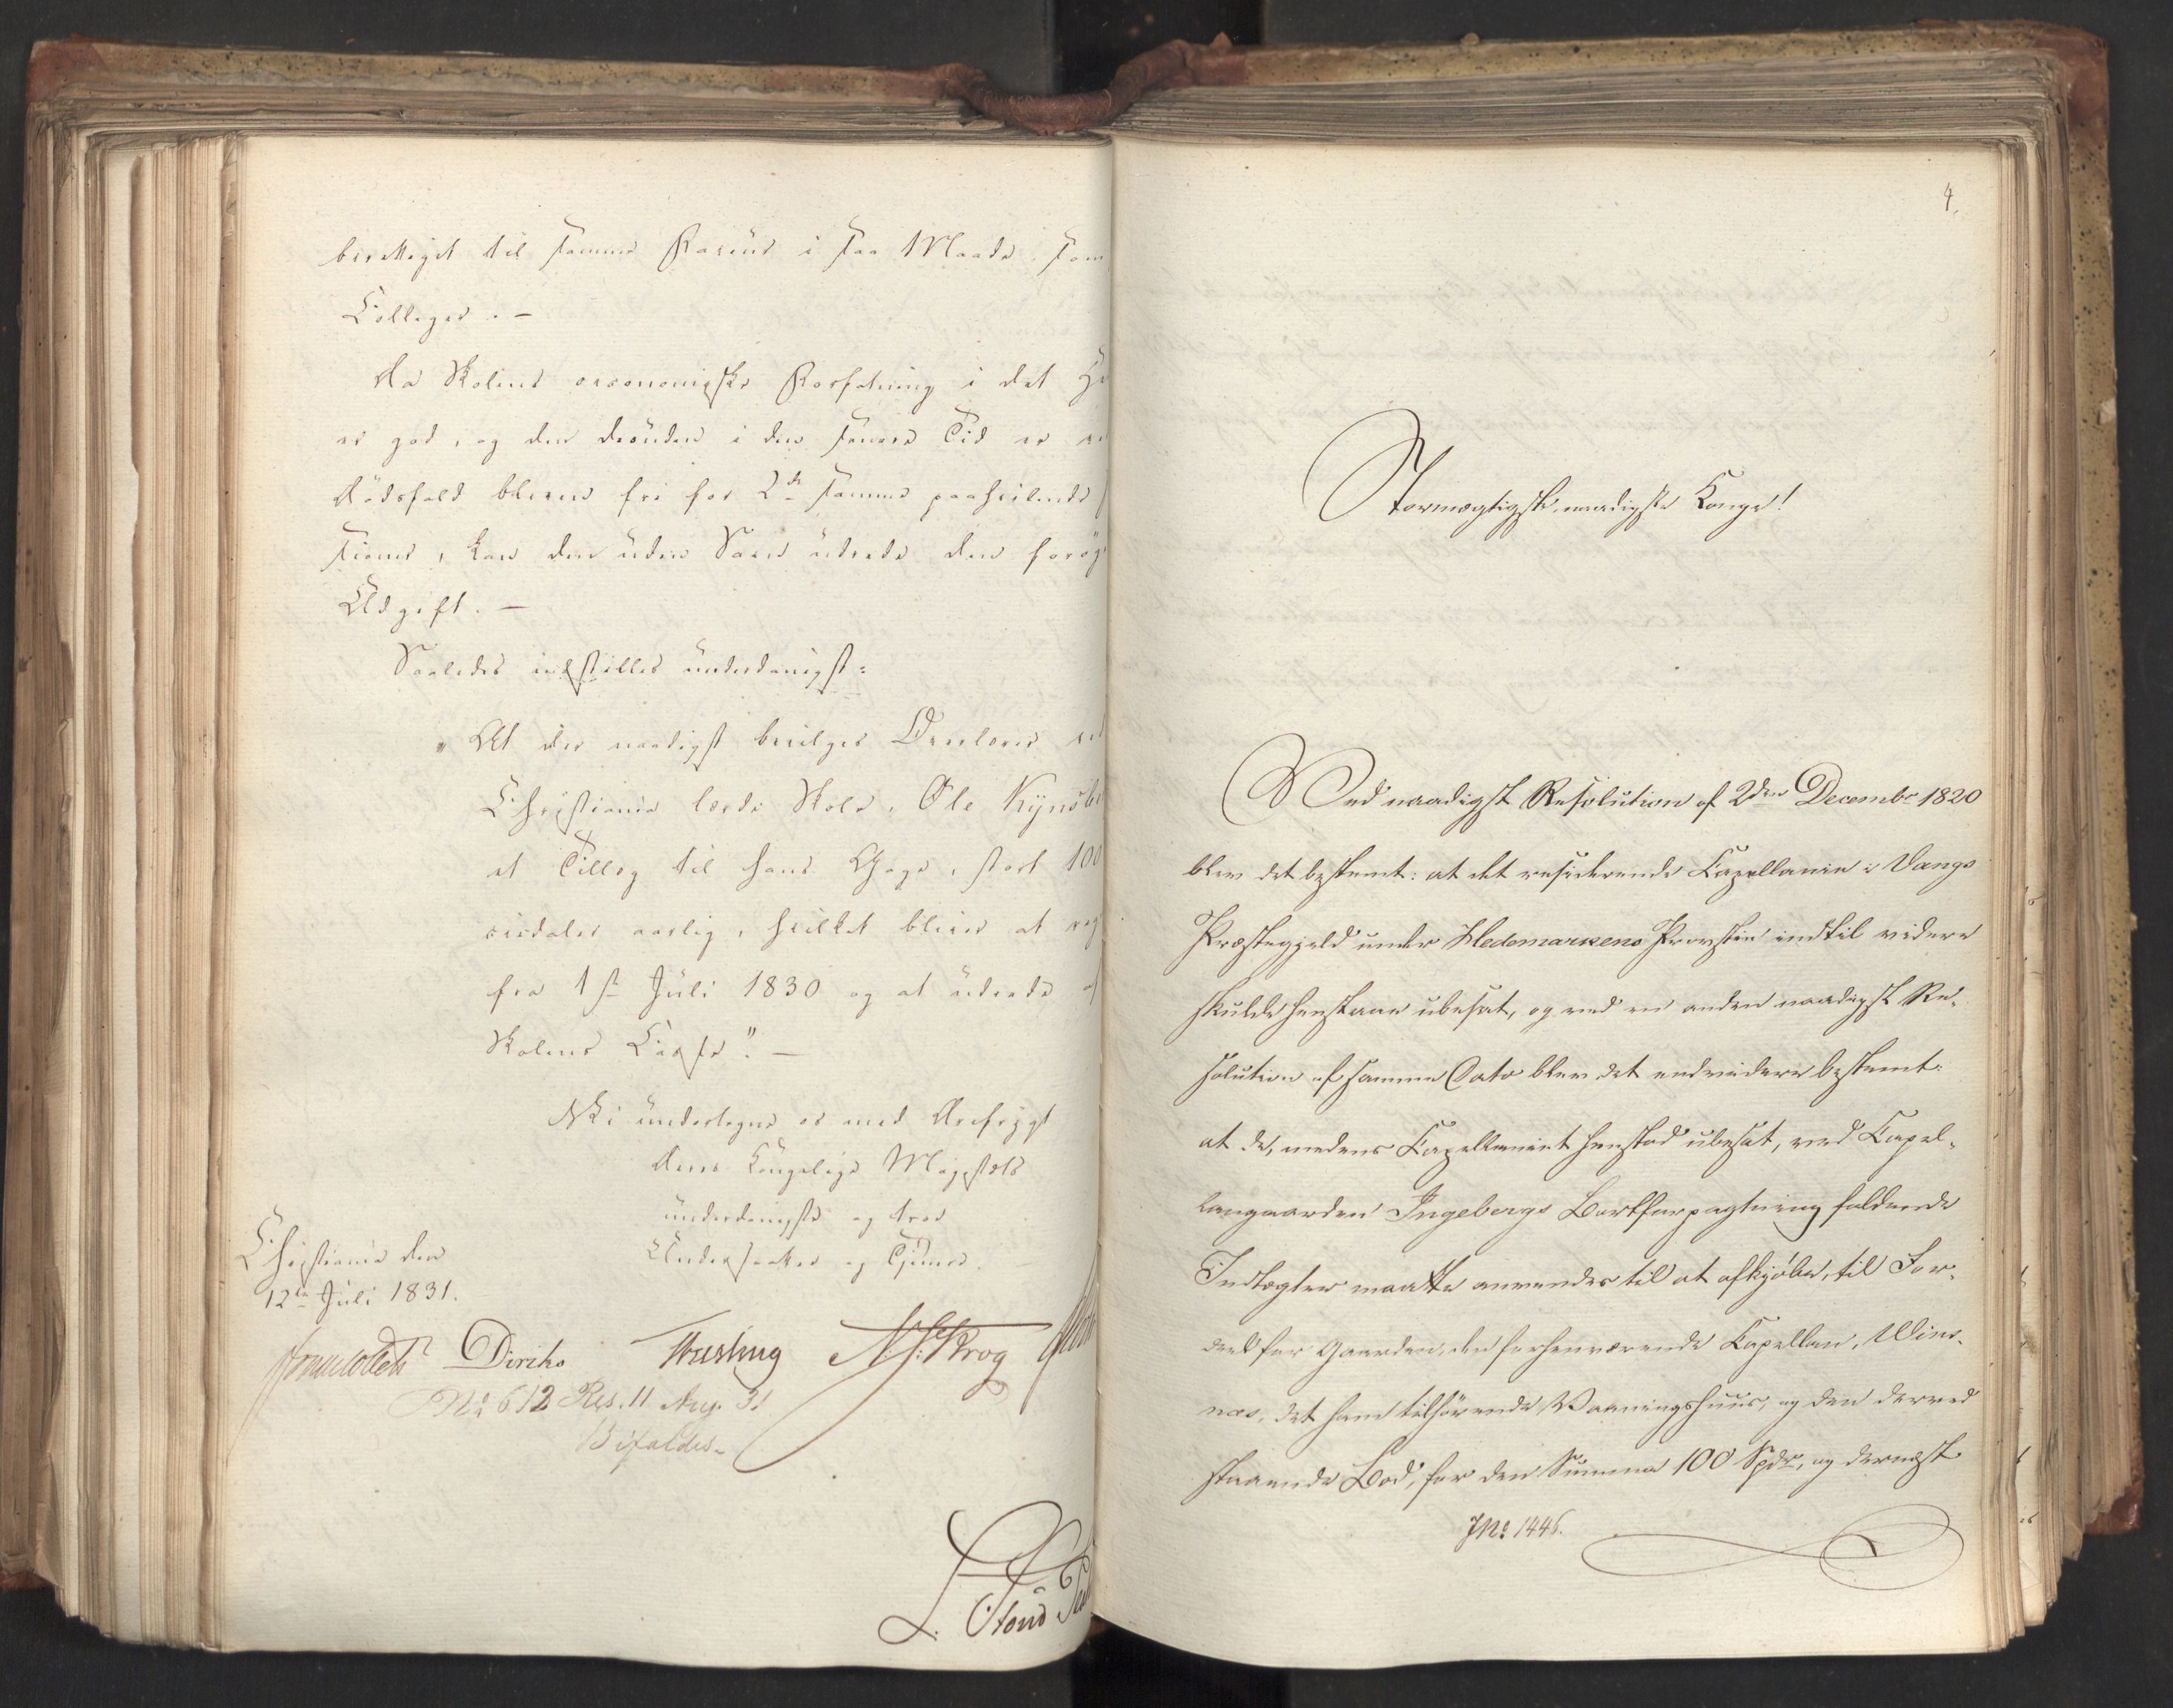 berettiget til samme Faveur i saa Maade, som
Colleger. —
Da Skolens oeconomiske Forfatning i det He
er god, og den desuden i den senere Tid er ve
Dödsfald bleven fri for 2de samme paahvilende
sioner, kan den uden Savn udrede den foröge
Udgift. —
Saaledes indstilles underdanigst:
"At der naadigst bevilges Overlærer ved
Christiania lærde Skole, Ole Kynsbe
et Tillæg til hans Gage, stort 100
ciedaler aarlig, hvilket bliver at reg
fra 1ste Juli 1830 og at udrede af
Skolens Casse". —
Vi undertegne os med Ærefrygt
Deres Kongelige Majestæts
underdanigste og troe
Undersaatter og Tjenere.
Christiania den
12te Juli 1831.
Diriks N. J. Krog
No 612 Res. 11 Aug. 31
Bifaldes.
4.
Stormægtigste, naadigste Konge!
Ved naadigst Resolution af 2den Decembr 1820
blev det bestemt: at det residerende Capellanie i Vangs
Præstegjeld under Hedemarkens Provstie indtil videre
skulde henstaae ubesat, og ved en anden naadigst Re-
solution af samme Dato blev det endvidere bestemt:
at de, medens Capellaniet henstod ubesat, ved Capel-
langaarden Ingebergs Bortforpagtning faldende
Indtægter maatte anvendes til at afkjöbe, til For-
deel for Gaarden, den forhenværende Capellan, Wins-
nes, det ham tilhörende Vaaningshuus, og den derved
staaende Bod, for den Summa 100 Spdr, og dernæst
JNo 1446.